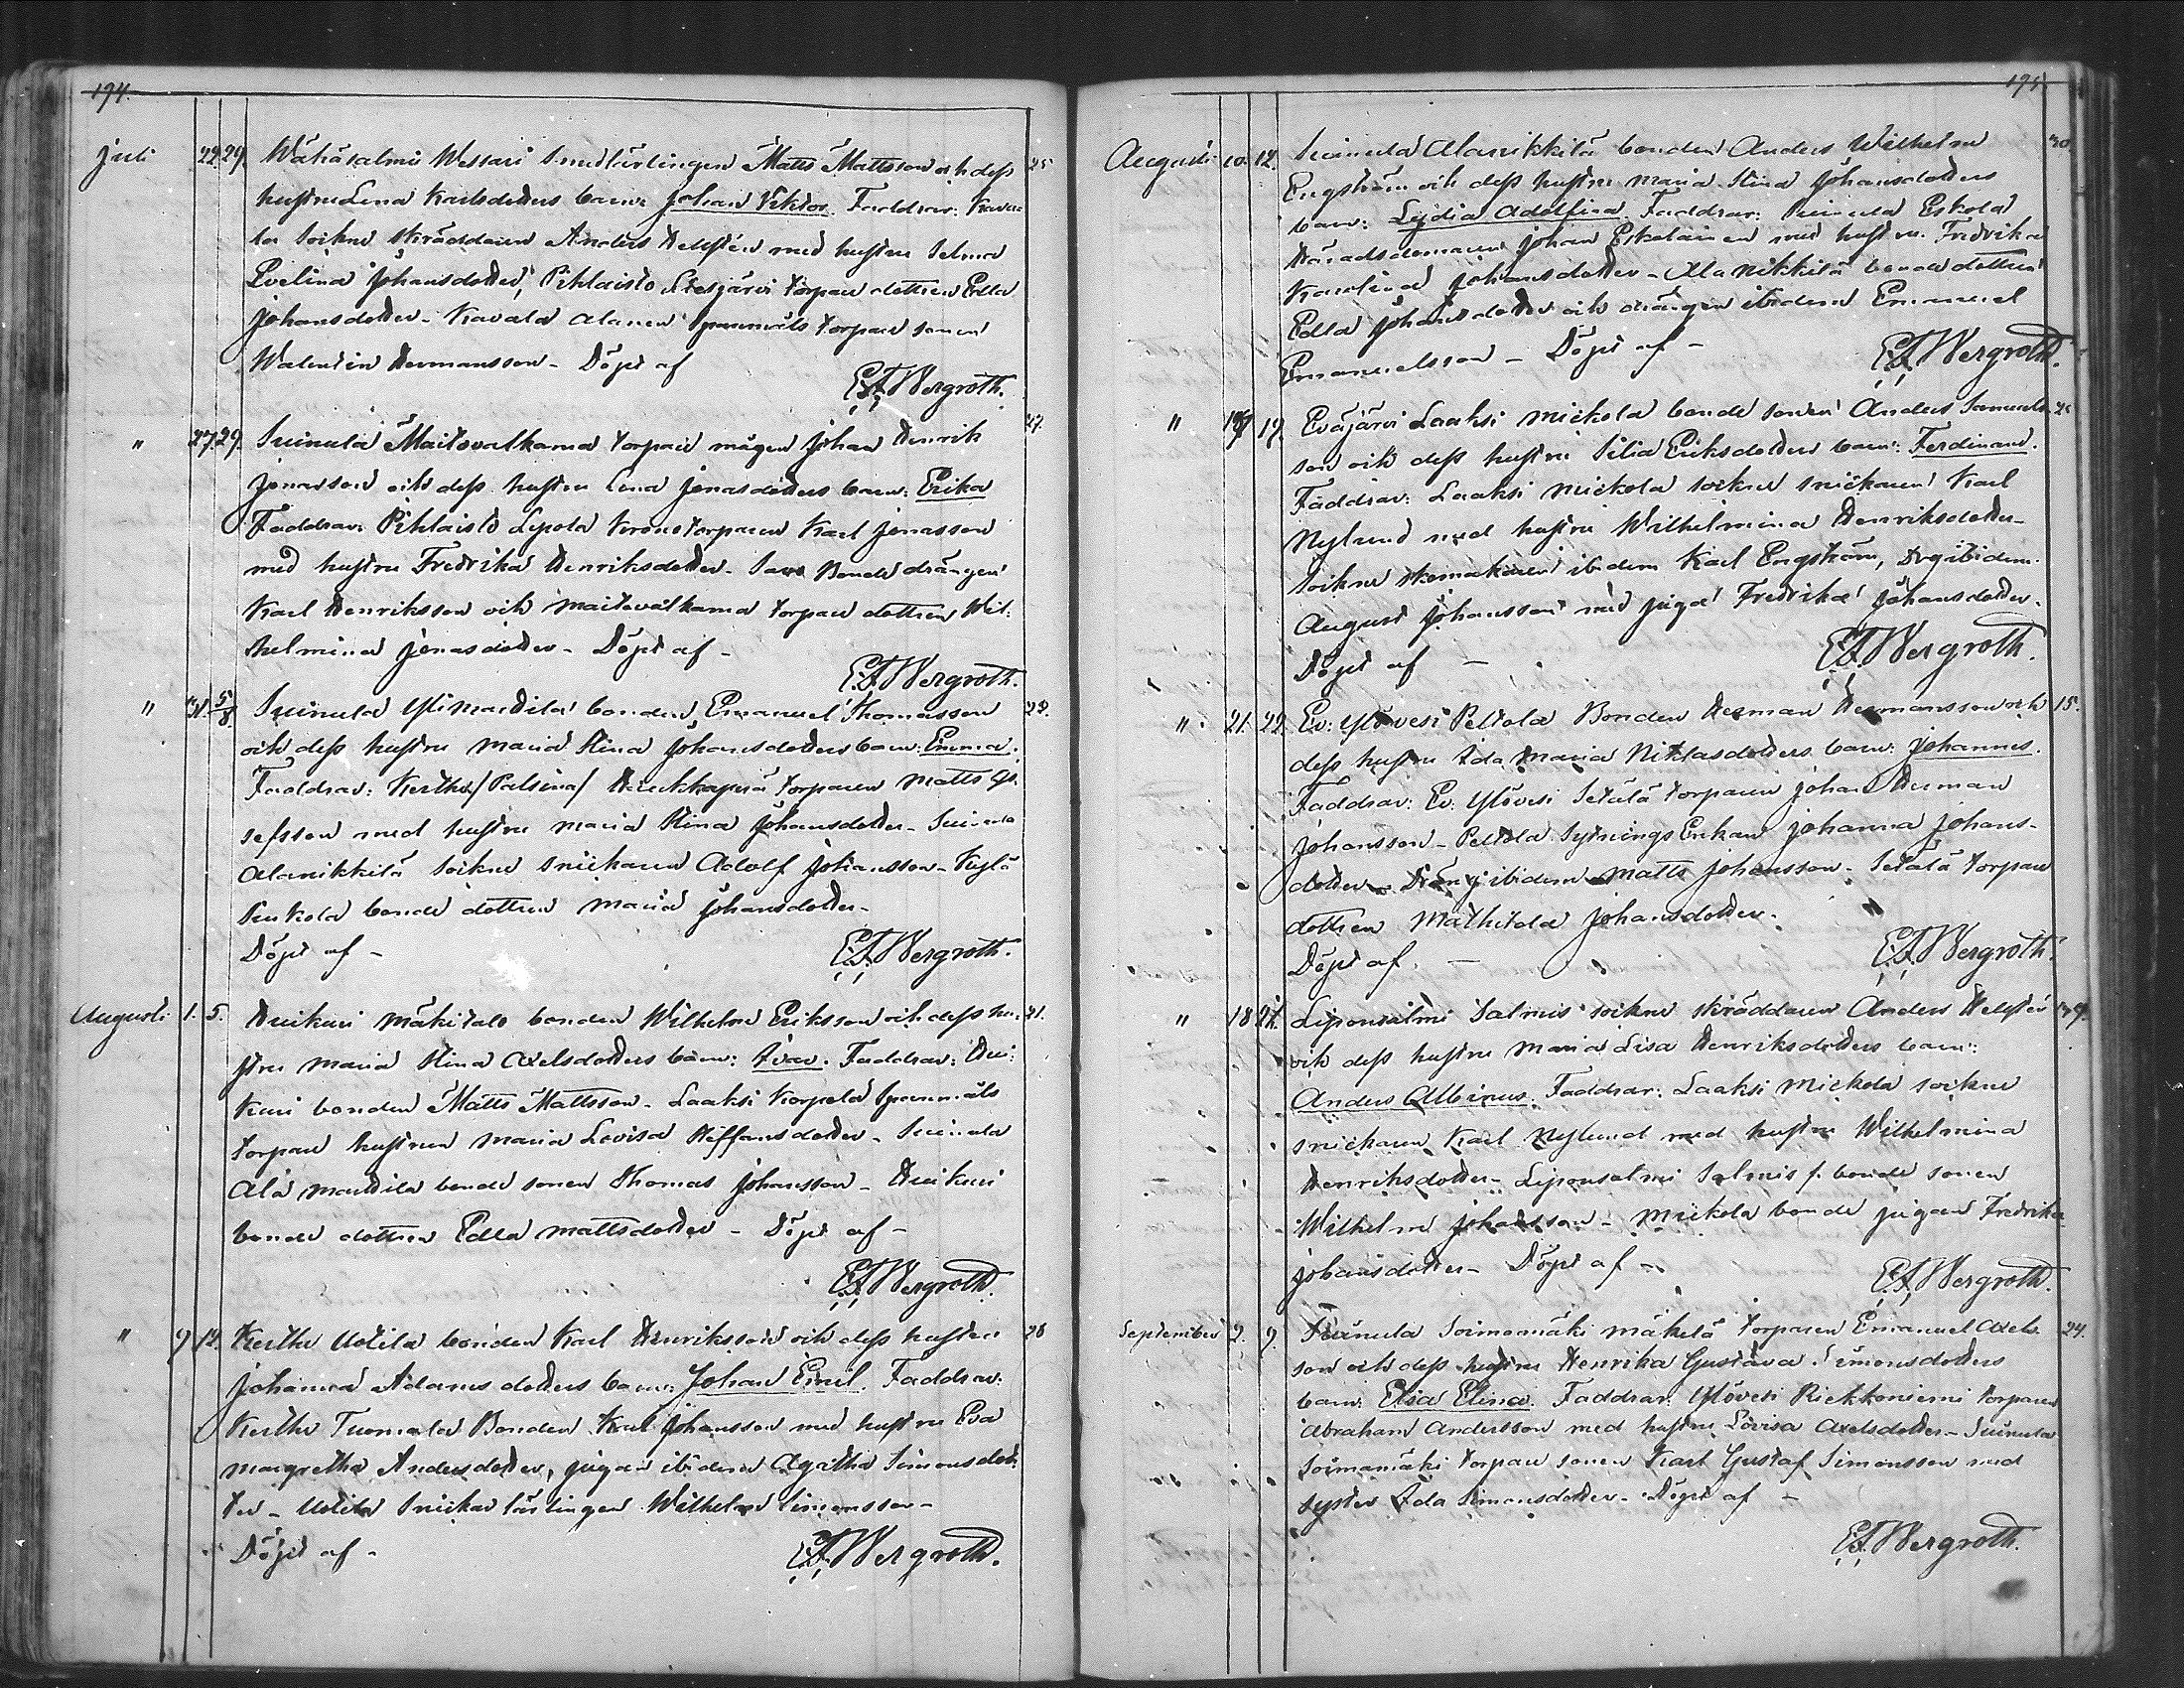 194.
Juli 22. 29. Wähäsalmi Wessari Smedlärlingen Matts Mattsson och dess 25
hustru Lena Karlsdotters barn: Johan Viktor. Faddrar: Kava-
la Sockne skräddaren Anders Hellstén med hustru Selma
Evelina Johansdotter, Pihlaisto Liesjärvi torpare dottren Edla
Johansdotter - Kavala Alanen Spannmåls torpare sonen
Walentin Hermansson - Döpt af
E. F. Wergroth.
" 27. 29. Suinula Maitovalkama torpare mågen Johan Henrik 27.
Jonasson och dess hustru Lena Jonasdotters barn: Erika
Faddrar: Pihlaisto Lepola Kronotorparen Karl Jonasson
med hustru Fredrika Henriksdotter - Bonde drängen
Karl Henriksson och Maitovalkama torpare dottren Wil-
helmina Jonasdotter - Döpt af -
E. F. Wergroth.
" 31. 5/8 Suinula Ylimardila bonden Emanuel Thomasson 28.
och dess hustru Maria Stina Johansdotters barn: Emma.
Faddrar: Kerthe /Palsina/ torparen Matts Jo-
sefsson med hustru Maria Stina Johansdotter - Suinula
Alanikkilä Sockne snickaren Adolf Johansson - Kylä
bonde dottren Maria Johansdotter -
Döpt af -
E. F. Wergroth.
Augusti 1. 5. Huikuri Mäkitalo bonden Wilhelm Eriksson och dess hu- 21.
stru Maria Stina Axelsdotters barn: Ivar. Faddrar: Hui-
kuri bonden Matts Mattsson - Laaksi Korpela Spannmåls
torpare hustrun Maria Lovisa Steffansdotter - Suinula
Ala Mardila bonde sonen Thomas Johansson - Huikuri
bonde dottren Edla Mattsdotter - Döpt af -
E. F. Wergroth.
" 9 12. Kerthe Uotila bonden Karl Henriksson och dess hustru 28
Johanna Adamsdotters barn: Johan Emil. Faddrar:
Kerthe Tuomala Bonden Karl Johansson med hustru Eva
Margretha Andersdotter, pigan ibidem Agatha Simonsdot-
ter - Uotila Snickar lärlingen Wilhelm Simonsson -
Döpt af -
E. F. Wergroth.
195
Augusti 10. 12. Suinula Alanikkilä bonden Anders Wilhelm 30
Engström och dess hustru Maria Stina Johansdotters
barn: Lydia Adolfina. Faddrar: Suinula Eskola
Häradsdomaren Johan Eskolainen med hustru Fredrika
Karolina Johansdotter - Alanikkilä bonde dottren
Edla Johansdotter och drängen ibidem Emanuel
Emanuelsson - Döpt af -
E. F. Wergroth.
" 19. Eväjärvi Laaksi Mickola bonde sonen Anders Samuels-
son och dess hustru Silia Eriksdotters barn: Ferdinand.
Faddrar: Laaksi Mickola sockne snickaren Karl
Nylund med hustru Wilhelmina Henriksdotter -
Sockne skomakaren ibidem Karl Engström, drg ibidem
August Johansson med piga Fredrika Johansdotter.
Döpt af -
E. F. Wergroth.
" 21. 22. Ev: Ylövesi Peltola Bonden Herman Hermansson och 15.
dess hustru Ida Maria Niklasdotters barn: Johannes.
Faddrar: Ev: Ylövesi Setälä torparen Johan Herman
Johansson - Peltola Sytnings Enkan Johanna Johans-
dotter - Dräng ibidem Matts Johansson - Setälä torpare
dottren Mathilda Johansdotter.
Döpt af -
E. F. Wergroth.
" 18 Liponsalmi Salmis sockne skräddaren Anders Hellstén
och dess hustru Maria Lisa Henriksdotters barn:
Anders Albinus. Faddrar: Laaksi Mickola sockne
snickaren Karl Nylund med hustru Wilhelmina
Henriksdotter - Liponsalmi Salmis f. bonde sonen
Wilhelm Johansson - Mickola bonde pigan Fredrika
Johansdotter - Döpt af -
E. F. Wergroth.
September 2. 9. Suinula Soimamäki Mäkelä torparen Emanuel Axels- 24.
son och dess hustru Henrika Gustava Simonsdotters
barn: Elsa Elina. Faddrar: Ylövesi Riekkoniemi torparen
Abraham Andersson med hustru Lovisa Axelsdotter - Suinula
Soimamäki torpare sonen Karl Gustaf Simonsson med
syster Ida Simonsdotter - Döpt af -
E. F. Wergroth.